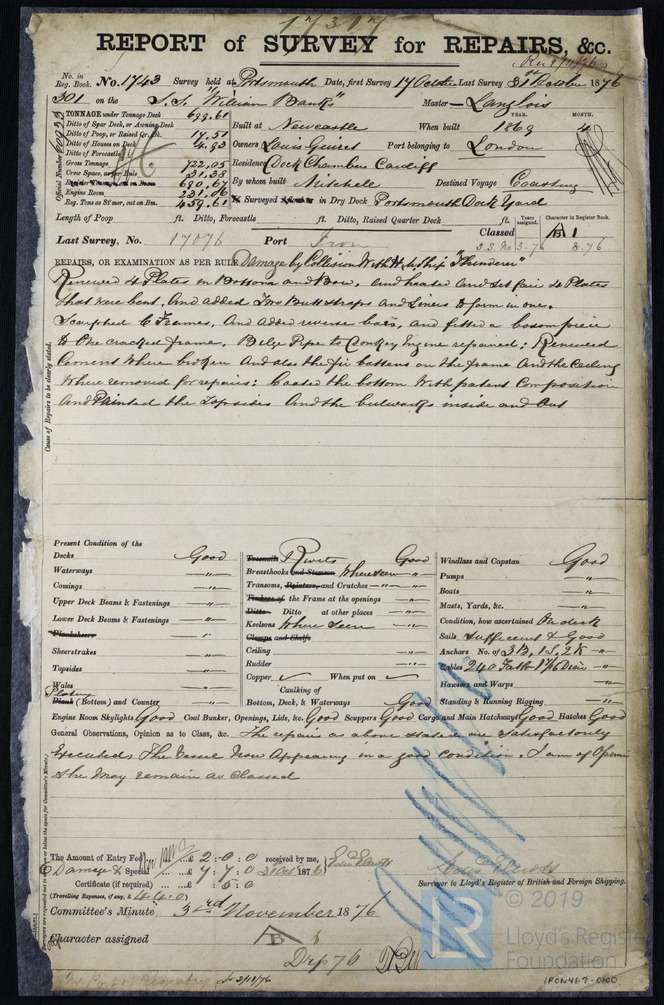 17317
REPORT of SURVEY for REPAIRS, &c.
No. in Reg. Book. No. 1743 Survey held at Portsmouth Date, first Survey 17 October Last Survey 31st October 1876
301 on the S.S. "William Banks" Master Langlois
TONNAGE under Tonnage Deck 699.61
Ditto of Spar Deck, or Awning Deck
Ditto of Poop, or Raised Qr. Dk. 17.51
Ditto of Houses on Deck 4.93
Ditto of Forecastle
Gross Tonnage 722.05
Crew Space, as per Rule 31.38
690.67
Engine Room 231.06
Reg. Tons as St'mer, cut on Bm. 459.61
Official Number
Built at Newcastle When built YEAR. 1869 MONTH. 4
Owners Louis Gueret Port belonging to London
Residence Dock Chambers Cardiff
By whom built Mitchell Destined Voyage Coasting
Surveyed Afloat or in Dry Dock Portsmouth Dock Yard
Length of Poop ft. Ditto, Forecastle ft. Ditto, Raised Quarter Deck ft. Years assigned. Character in Register Book.
Last Survey, No. 17076 Port Iron Classed A 1
S.S. No 3-76 8.76
REPAIRS, OR EXAMINATION AS PER RULE Damage by Collision With H.M. Ship "Thunderer"
Cause of Repairs to be clearly stated.
Renewed 4 Plates in Bottom and Bow, and heated and set fair 4 Plates
that were bent, And added Two Butt straps and Liners to form in one.
Scarphed 6 Frames, And added reverse bars, and fitted a bosom piece
to One cracked frame. Bilge Pipe to Donkey Engine repaired: Renewed
Cement Where broken And also the fir battens on the frame And the Ceiling
Where removed for repairs: Coated the bottom With patent Composition
And Painted the Topsides And the bulwarks inside and Out
Present Condition of the
Decks Good
Waterways "
Comings "
Upper Deck Beams & Fastenings "
Lower Deck Beams & Fastenings "
Planksheers "
Sheerstrakes "
Topsides "
Wales "
Plating
Plank (Bottom) and Counter "
Treenails Rivets Good
Breasthooks and Stemson Where seen "
Transoms, Pointers, and Crutches "
Timbers of the Frame at the openings "
Ditto Ditto at other places "
Keelsons Where seen "
Clamps and Shelfs
Ceiling "
Rudder "
Copper ✓ When put on ✓
Caulking of
Bottom, Deck, & Waterways Good
Windlass and Capstan Good
Pumps "
Boats "
Masts, Yards, &c. "
Condition, how ascertained On deck
Sails Sufficient & Good
Anchors No. of 3B, 1S, 2K "
Cables 240 Fath 1 7/16 Diam "
Hawsers and Warps "
Standing & Running Rigging "
Engine Room Skylights Good Coal Bunker, Openings, Lids, &c. Good Scuppers Good Cargo and Main Hatchways Good Hatches Good
General Observations, Opinion as to Class, &c. The repairs as above stated are Satisfactorily
Executed. The Vessel Now Appearing in a good condition. I am of Opinion
She May remain as Classed
The Amount of Entry Fee £ 2 : 0 : 0 received by me,
Damage & Special £ 7 : 7 : 0 31 Oct 1876
Certificate (if required) : 5 : 0
(Travelling Expenses, if any, £ 4.4.0)
Surveyor to Lloyd's Register of British and Foreign Shipping.
Committee's Minute 3rd November 1876
Character assigned A 1
© 2019
Lloyd's Register
Foundation
IRON467-0100